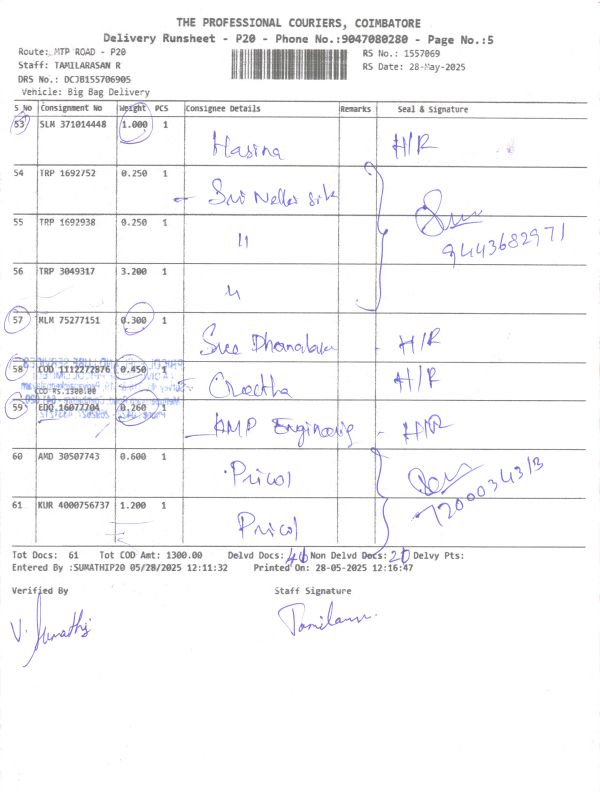 THE PROFESSIONAL COURIERS, COIMBATORE
Delivery Runsheet - P20 - Phone No.:9047080280 - Page No.:5
Route: MTP ROAD - P20
RS No.: 1557069
Staff: TAMILARASAN R
RS Date: 28-May-2025
DRS No.: DCJB155706905
Vehicle: Big Bag Delivery
S_No Consignment No Weight PCS Consignee Details Remarks Seal & Signature
53 SLM 371014448 1.000 1 Hasina H/R
54 TRP 1692752 0.250 1 Sri Nellai silk
55 TRP 1692938 0.250 1 11
9443682971
56 TRP 3049317 3.200 1 "
57 MLM 75277151 0.300 1 Sree H/R
58 COD 1112272876 0.450 1 H/R
COD RS.1300.00
59 EDQ 16077704 0.260 1 AMP Engineering
60 AMD 30507743 0.600 1 Pricol
7200034313
61 KUR 4000756737 1.200 1 Pricol
Tot Docs: 61 Tot COD Amt: 1300.00 Delvd Docs: Non Delvd Docs: 20 Delvy Pts:
Entered By :SUMATHIP20 05/28/2025 12:11:32 Printed On: 28-05-2025 12:16:47
Verified By Staff Signature
V. Sumathi